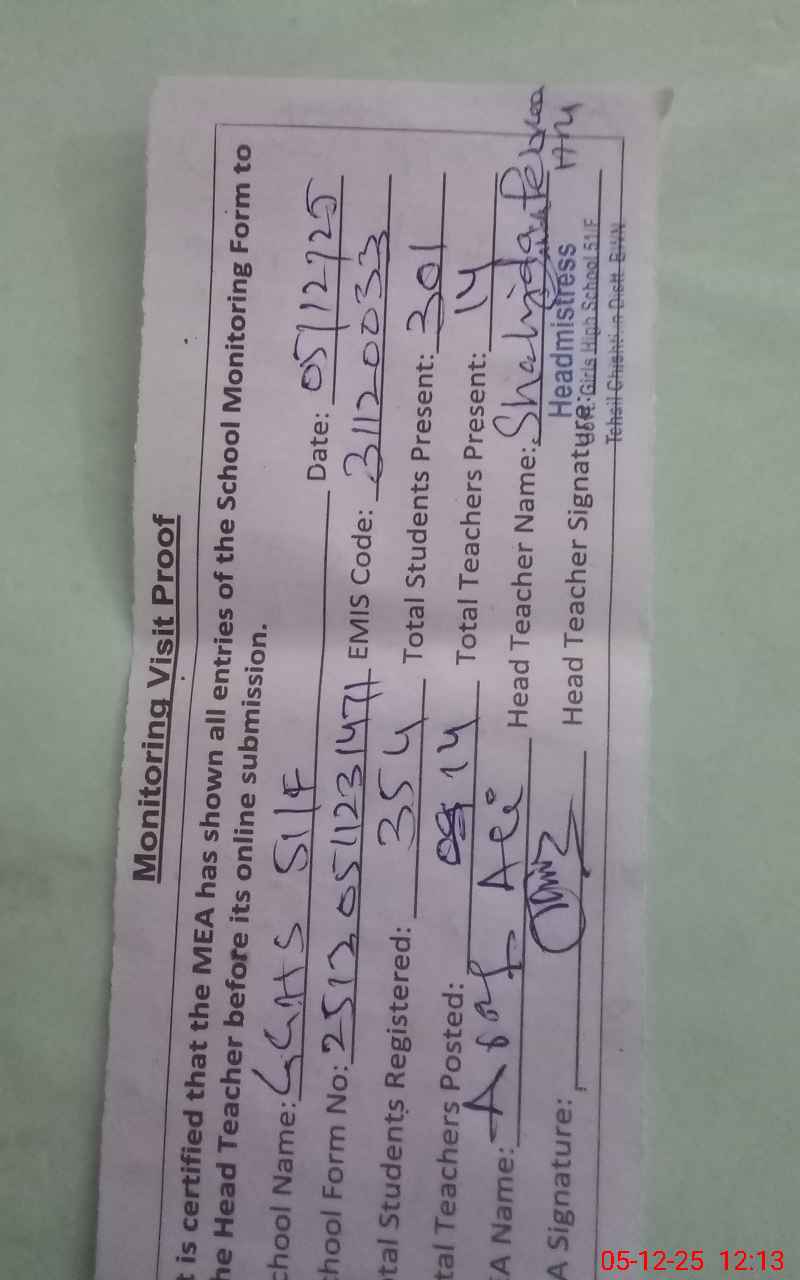 Monitoring Visit Proof
t is certified that the MEA has shown all entries of the School Monitoring Form to
he Head Teacher before its online submission.
chool Name: GGHS 51/F Date: 05/12/25
hool Form No: 25120511231471 EMIS Code: 31120033
tal Students Registered: 354 Total Students Present: 301
tal Teachers Posted: 14 Total Teachers Present: 14
A Name: Ali Head Teacher Name: Shahida
A Signature: Head Teacher Signature:
Headmistress
Govt. Girls High School 51/F
Tehsil Chishtian Distt. BWN
05-12-25 12:13